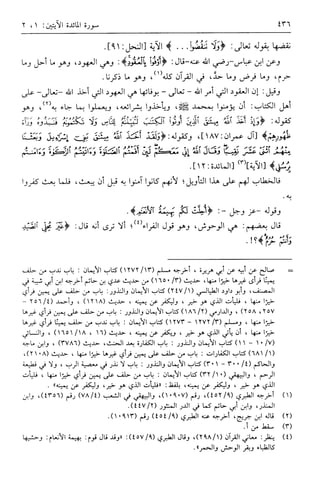 ٤٣٦ سورة المائدة الآيتين: ١ ، ٢
نقضها بقوله تعالى: ﴿وَلَا تَنقُضُوا۟ ... ﴾ الآية [النحل: ٩١].
وعن ابن عباس -رضي الله عنه- قال: ﴿أَوْفُوا۟ بِٱلْعُقُودِ﴾: وهي العهود، وهو ما أحل وما
حرم، وما فرض وما حدَّ، في القرآن كله(١)، وهو ما ذكرنا.
وقيل: إن العقود التي أمر الله -تعالى- بوفائها هي العهود التي أخذ الله -تعالى- على
أهل الكتاب: أن يؤمنوا بمحمد ﷺ، ويأخذوا بشرائعه، ويعملوا بما جاء به(٢)، وهو
كقوله: ﴿وَإِذْ أَخَذَ ٱللَّهُ مِيثَٰقَ ٱلَّذِينَ أُوتُوا۟ ٱلْكِتَٰبَ لَتُبَيِّنُنَّهُۥ لِلنَّاسِ وَلَا تَكْتُمُونَهُۥ فَنَبَذُوهُ وَرَآءَ
ظُهُورِهِمْ﴾ [آل عمران: ١٨٧]، وكقوله: ﴿وَلَقَدْ أَخَذَ ٱللَّهُ مِيثَٰقَ بَنِىٓ إِسْرَٰٓءِيلَ وَبَعَثْنَا
مِنْهُمُ ٱثْنَىْ عَشَرَ نَقِيبًا وَقَالَ ٱللَّهُ إِنِّى مَعَكُمْ لَئِنْ أَقَمْتُمُ ٱلصَّلَوٰةَ وَءَاتَيْتُمُ ٱلزَّكَوٰةَ وَءَامَنتُم
بِرُسُلِى﴾ [الآية](٣) [المائدة: ١٢].
فالخطاب لهم على هذا التأويل؛ لأنهم كانوا آمنوا به قبل أن يبعث، فلما بعث كفروا
به.
وقوله -عز وجل-: ﴿أُحِلَّتْ لَكُم بَهِيمَةُ ٱلْأَنْعَٰمِ﴾.
قال بعضهم: هي الوحوش، وهو قول الفراء(٤)؛ ألا ترى أنه قال: ﴿غَيْرَ مُحِلِّى ٱلصَّيْدِ
وَأَنتُمْ حُرُمٌ﴾؟!.
= صالح عن أبيه عن أبي هريرة، أخرجه مسلم (١٢٧٢/٣) كتاب الأيمان: باب ندب من حلف
يمينًا فرأى غيرها خيرًا منها، حديث (١٦٥٠/٣) من حديث عدي بن حاتم أخرجه ابن أبي شيبة في
المصنف، وأبو داود الطيالسي (٢٤٧/١) كتاب الأيمان والنذور: باب من حلف على يمين فرأى
خيرًا منها، فليأت الذي هو خير، وليكفر عن يمينه، حديث (١٢١٨)، وأحمد (٢٥٦/٤ -
٢٥٧، ٢٥٨)، والدارمي (١٨٦/٢) كتاب الأيمان والنذور: باب من حلف على يمين فرأى غيرها
خيرًا منها، ومسلم (١٢٧٢/٣ - ١٢٧٣) كتاب الأيمان: باب ندب من حلف يمينًا فرأى غيرها
خيرًا منها، أن يأتي الذي هو خير، ويكفر عن يمينه، حديث (١٦، ١٦٥١/١٨)، والنسائي
(١٠/٧ - ١١) كتاب الأيمان والنذور: باب الكفارة بعد الحنث، حديث (٣٧٨٦)، وابن ماجه
(٦٨١/١) كتاب الكفارات: باب من حلف على يمين فرأى غيرها خيرًا منها، حديث (٢١٠٨)،
والحاكم (٣٠٠/٤ - ٣٠١) كتاب الأيمان والنذور: باب لا نذر في معصية الرب، ولا في قطيعة
الرحم، والبيهقي (٣٢/١٠) كتاب الأيمان: باب من حلف على يمين فرأى خيرًا منها، فليأت
الذي هو خير، وليكفر عن يمينه، بلفظ: «فليأت الذي هو خير، وليكفر عن يمينه».
(١) أخرجه الطبري (٤٥٢/٩) رقم (١٠٩٠٧)، والبيهقي في الشعب (٧٨/٤) رقم (٤٣٥٦)، وابن
المنذر، وابن أبي حاتم كما في الدر المنثور (٤٤٧/٢).
(٢) قاله ابن جريج، أخرجه عنه الطبري (٤٥٤/٩) رقم (١٠٩١٣).
(٣) سقط من أ.
(٤) ينظر: معاني القرآن (٢٩٨/١)، وقال الطبري (٤٥٧/٩): «وقد قال قوم: بهيمة الأنعام: وحشيها
كالظباء وبقر الوحش والحمر».